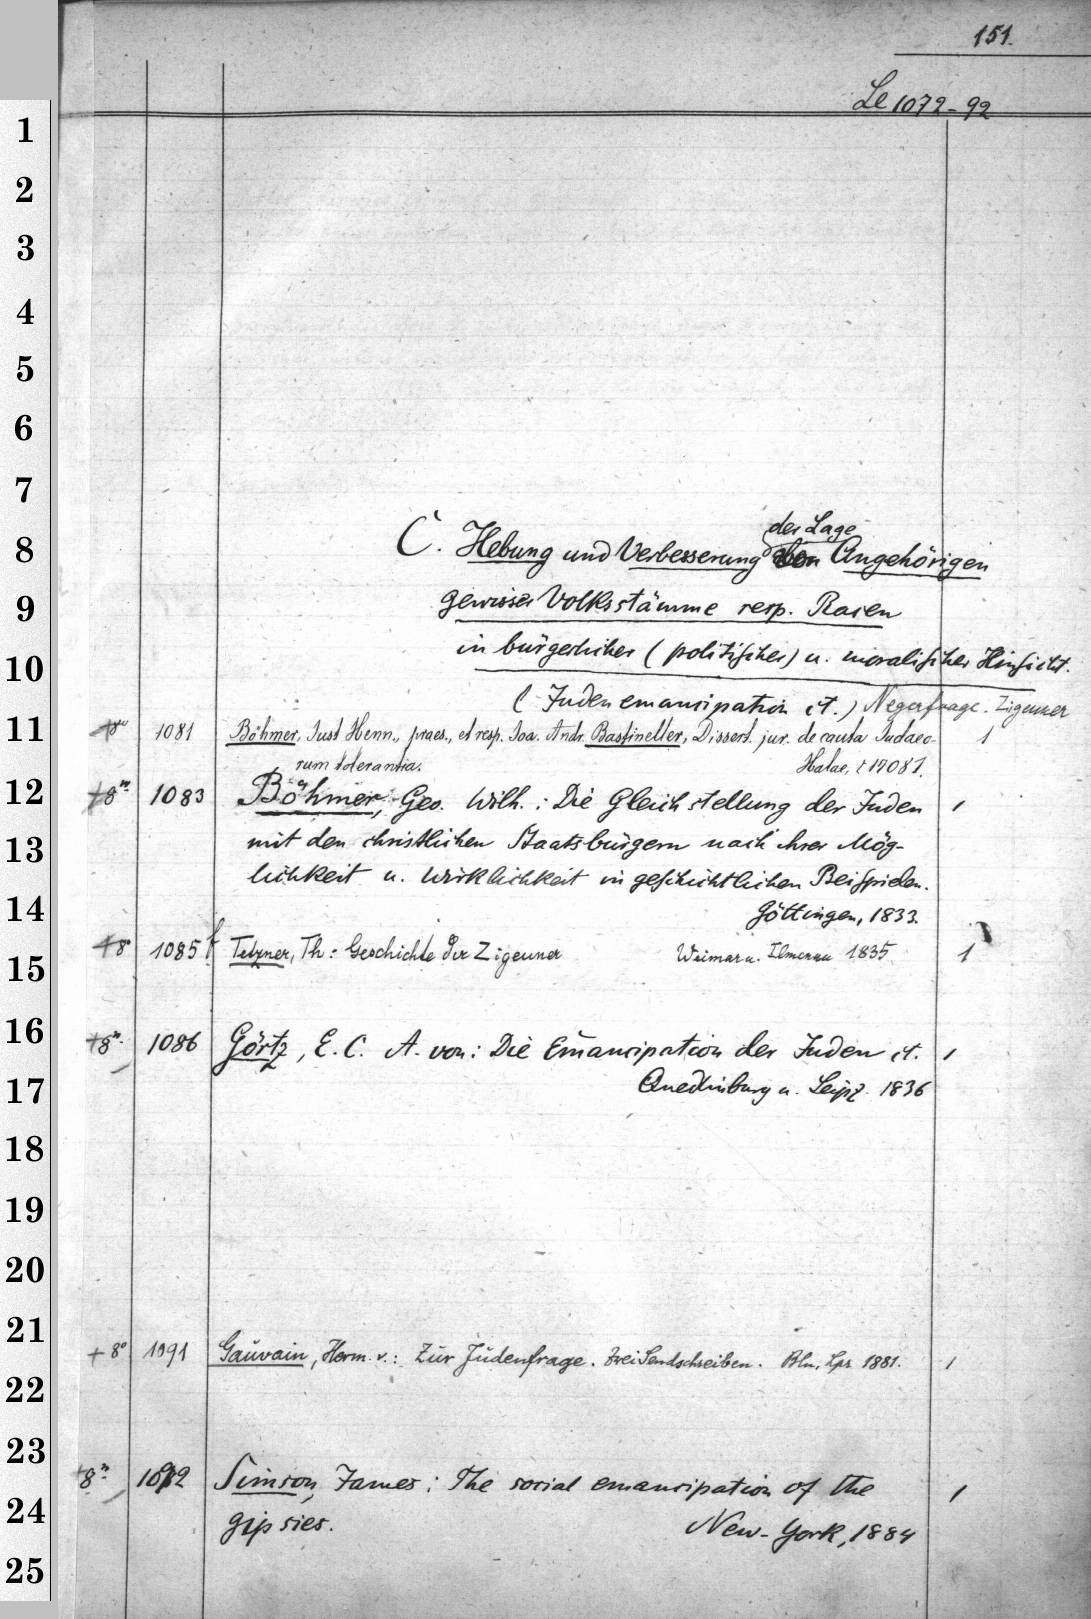 151.
Le 1072-92
1
2
3
4
5
6
7
der Lage
8 C. Hebung und Verbesserung Angehörigen
9 gewisser Volksstämme resp. Rasen
10 in bürgerlicher (politischer) u. moralischer Hinsicht.
(Judenemancipation etc.) Negerfrage. Zigeuner
11 1081 Böhmer, Just Henn., praes., et resp. Joa. Andr. Bastineller, Dissert. jur. de cauta Judaeo- 1
rum tolerantia. Halae, 1708
12 +8° 1083 Böhmer, Geo. Wilh.: Die Gleichstellung der Juden 1
13 mit den christlichen Staatsbürgern nach ihrer Mög-
lichkeit u. Wirklichkeit in geschichtlichen Beispielen.
14 Göttingen, 1833.
15 +8° 1085 Tetzner, Th: Geschichte der Zigeuner Weimar u. Ilmenau 1835. 1
16 +8° 1086 Görtz, E. C. A. von: Die Emancipation der Juden etc. 1
17 Quedlinburg u. Leipz. 1836
18
19
20
21 +8° 1091 Gauvain, Herm. v.: Zur Judenfrage. Zwei Sendschreiben. Bln, Lpz 1881. 1
22
23 8° 1092 Simson, James: The social emancipation of the 1
24 gipsies. New-York, 1884
25